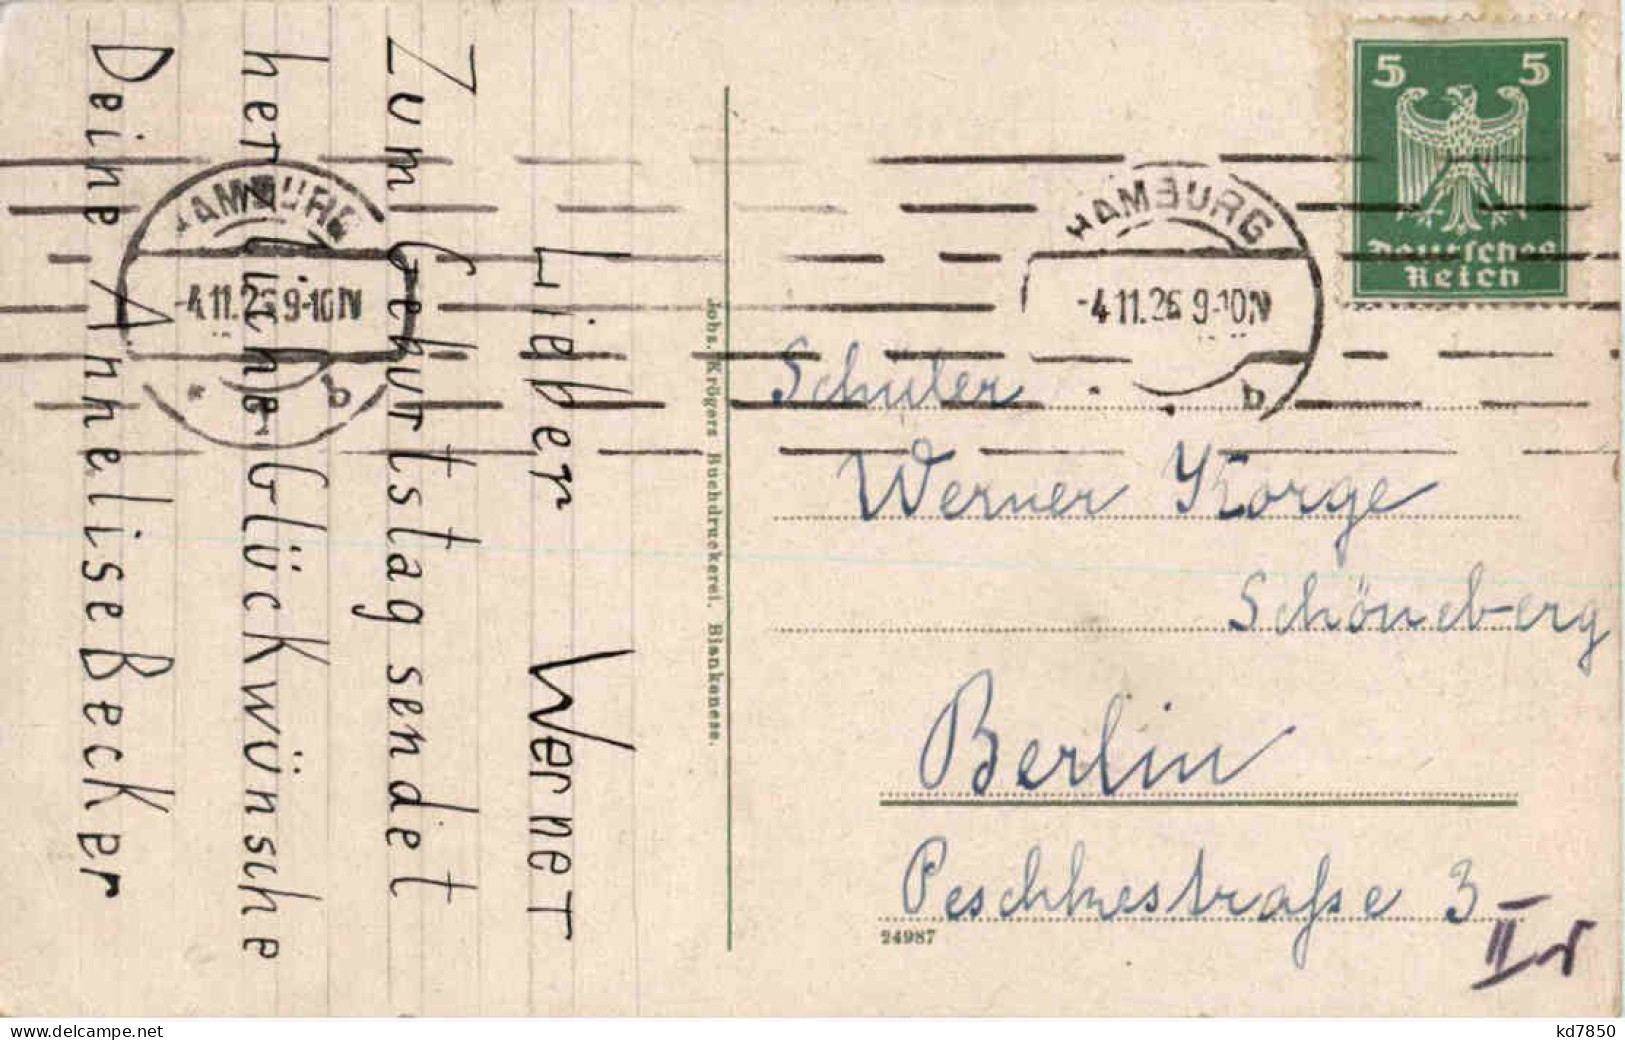 Lieber Werner
Zum Geburtstag sendet
herzliche Glückwünsche
Deine Annelise Becker
Johs. Krögers Buchdruckerei. Blankenese.
HAMBURG
-4.11.26 9-10N
b
HAMBURG
-4.11.26 9-10N
b
5 5
Deutsches
Reich
Schüler
Werner Korge
Schöneberg
Berlin
Peschkestraße 3
II r
24987
www.delcampe.net
kd7850